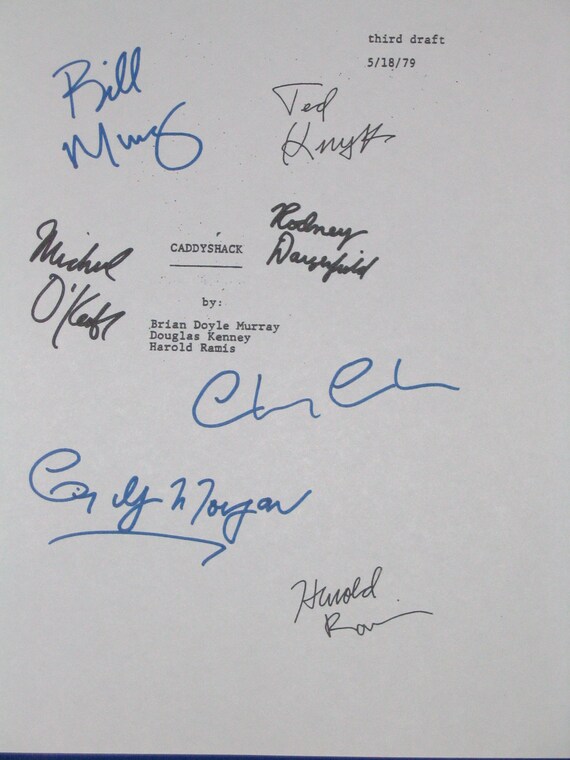 third draft
5/18/79
Bill
Murray
Ted
Knight
Rodney
Dangerfield
Michael
O'Keefe
CADDYSHACK
by:
Brian Doyle Murray
Douglas Kenney
Harold Ramis
Cindy Morgan
Harold
Ramis